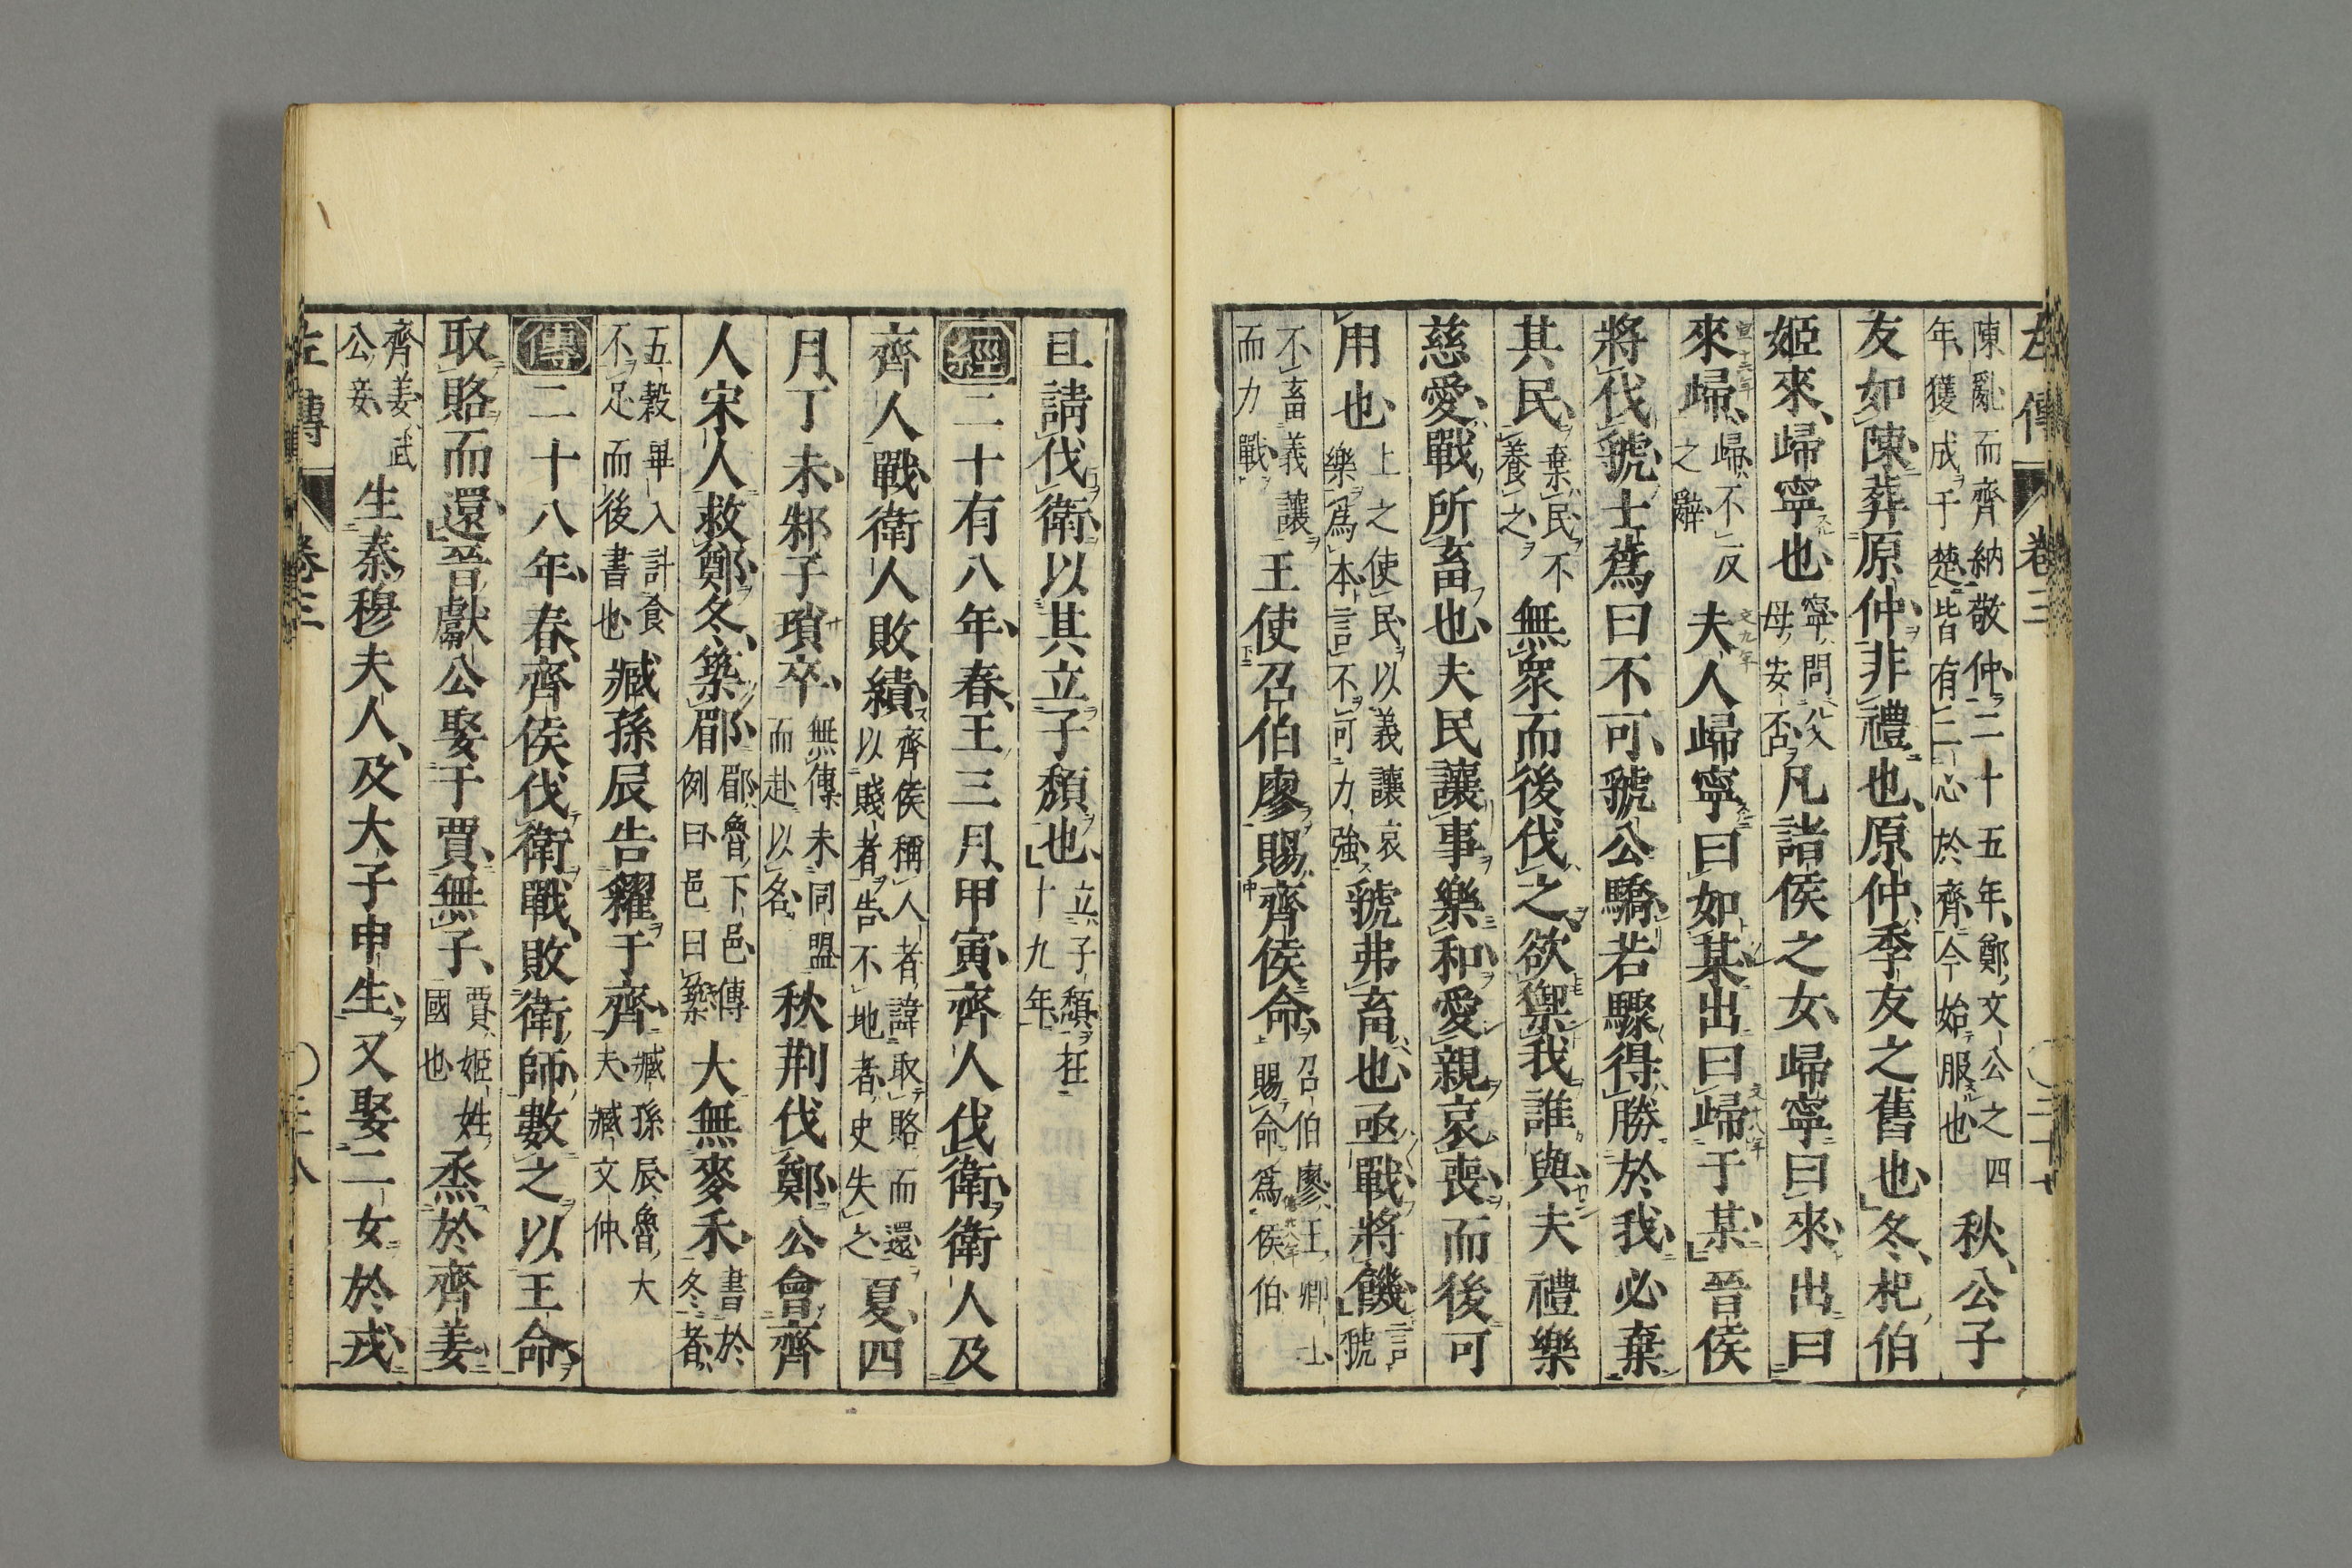 左傳 卷三 三十七
陳亂而齊納敬仲二十五年鄭文公之四
年獲成于楚皆有二心於齊今始服也 秋公子
友如陳葬原仲非禮也原仲季友之舊也冬杞伯
姬來歸寧也 寧問父
母安否 凡諸侯之女歸寧曰來出曰
來歸 歸不反
之辭 夫人歸寧曰如某出曰歸于某晉侯
將伐虢士蔿曰不可虢公驕若驟得勝於我必棄
其民 棄民不
養之 無衆而後伐之欲禦我誰與夫禮樂
慈愛戰所畜也夫民讓事樂和愛親哀喪而後可
用也 上之使民以義讓哀
樂爲本言不可力強 虢弗畜也亟戰將饑 言
虢
不畜義讓
而力戰 王使召伯廖賜齊侯命 召伯廖王卿士
賜命爲侯伯
且請伐衛以其立子頽也 立子頽在
十九年
經 二十有八年春王三月甲寅齊人伐衛衛人及
齊人戰衛人敗績 齊侯稱人者諱取賂而還
以賤者告不地者史失之 夏四
月丁未邾子瑣卒 無傳未同盟
而赴以名 秋荆伐鄭公會齊
人宋人救鄭冬築郿 郿魯下邑傳
例曰邑曰築 大無麥禾 書於
冬者
五穀畢入計食
不足而後書也 臧孫辰告糴于齊 臧孫辰魯大
夫臧文仲
傳 二十八年春齊侯伐衛戰敗衛師數之以王命
取賂而還晉獻公娶于賈無子 賈姬姓
國也 烝於齊姜
齊姜武
公妾 生秦穆夫人及大子申生又娶二女於戎
左傳 卷三 三十八